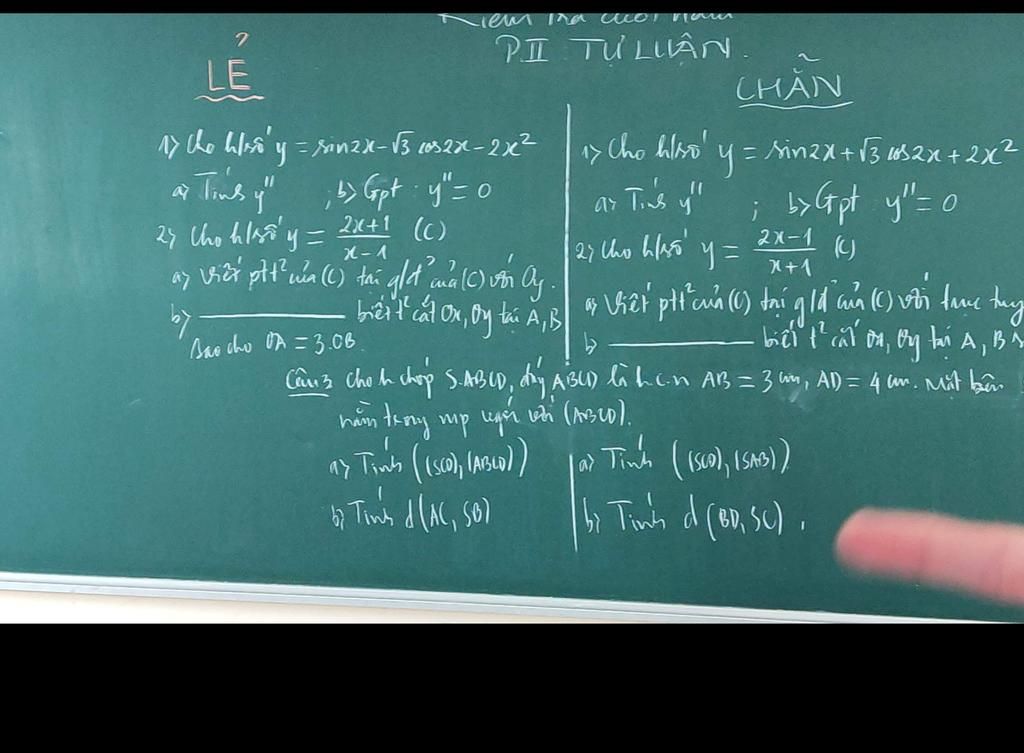 Kiểm tra cuối năm
P.II TỰ LUẬN.
LẺ
1) Cho h/số y = sin2x - √3 cos2x - 2x²
a) Tính y'' ; b) Gpt y'' = 0
2) Cho h/số y = (2x+1)/(x-1) (C)
a) Viết ptt² của (C) tại g/đ² của (C) với Oy.
b) ———— biết t² cắt Ox, Oy tại A, B
sao cho OA = 3.OB
CHẴN
1) Cho h/số y = sin2x + √3 cos2x + 2x²
a) Tính y'' ; b) Gpt y'' = 0
2) Cho h/số y = (2x-1)/(x+1) (C)
a) Viết ptt² của (C) tại g/đ² của (C) với trục tung
b ———— biết t² cắt Ox, Oy tại A, B
Câu 3 Cho h chóp S.ABCD, đáy ABCD là h.c.n AB = 3 cm, AD = 4 cm. Mặt bên
nằm trong mp với (ABCD).
a) Tính ((SCD), (ABCD))
b) Tính d(AC, SB)
a) Tính ((SCD), (SAB))
b) Tính d(BD, SC).